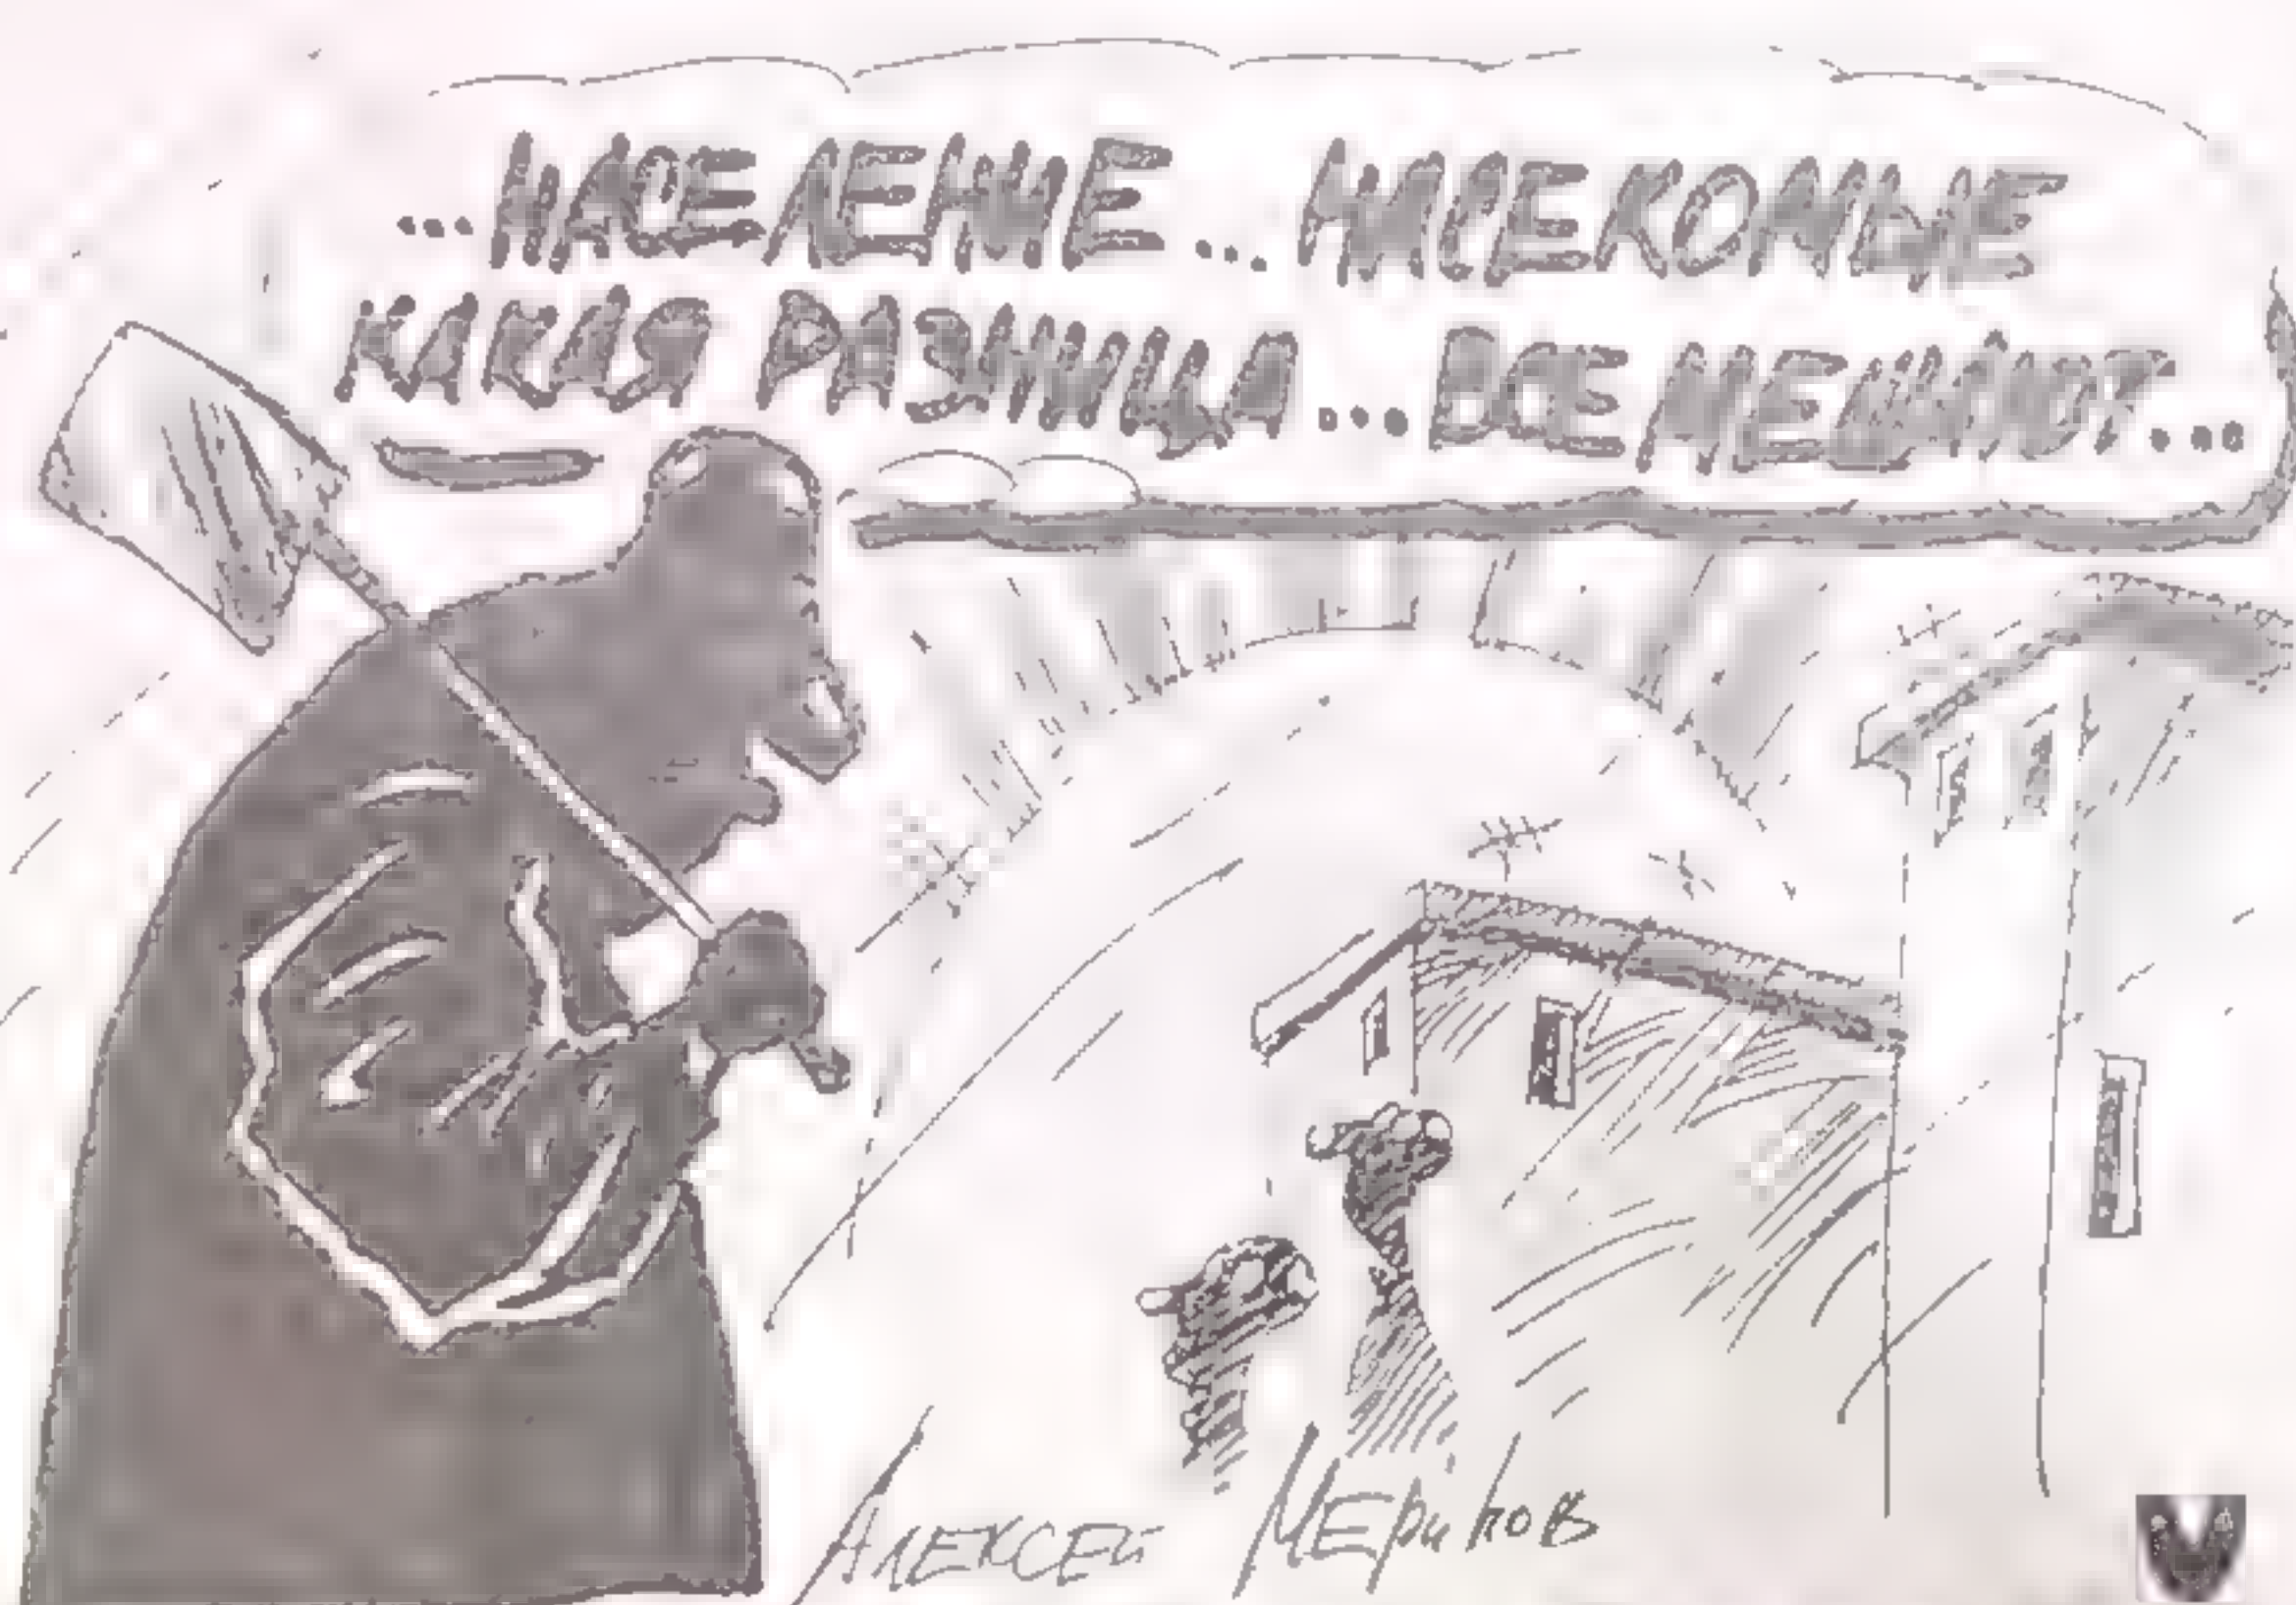 ...НАСЕЛЕНИЕ...НАСЕКОМЫЕ
КАКАЯ РАЗНИЦА...ВСЕ МЕШАЮТ...
АЛЕКСЕЙ МЕРИНОВ